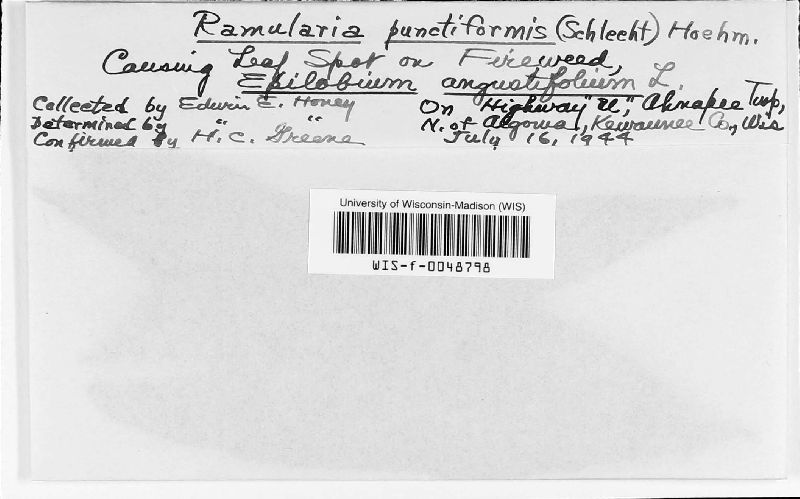 Ramularia punctiformis (Schlecht) Hoehm.
Causing Leaf Spot on Fireweed,
Epilobium angustifolium L.
Collected by Edwin E. Honey
Determined by " "
Confirmed by H. C. Greene
On "Highway U," Ahnapee Twp,
N. of Algoma, Kewaunee Co., Wis
July 16, 1944
University of Wisconsin-Madison (WIS)
WIS-f-0048798